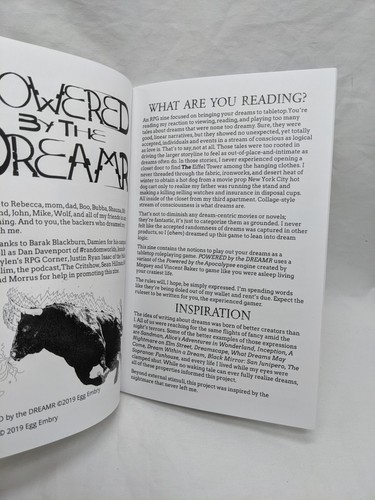 OWERED
BY THE
DREAMR
to Rebecca, mom, dad, Boo, Bubba, Shanna, M
nd, John, Mike, Wolf, and all of my friends
n. And to you, the backers who dreamed
th me.
hanks to Barak Blackburn, Damien for his
ell as Dan Davenport of #randomworlds, Jason
ylen's RPG Corner, Justin Ryan Isaac of the
lim, the podcast, The Grinhoe, Sean Hillman
and Morrus for help in promoting this zine
D by the DREAMR ©2019 Egg Embry
© 2019 Egg Embry
WHAT ARE YOU READING?
An RPG zine focused on bringing your dreams to tabletop. You're
reading my reaction to viewing, reading, and playing too many
tales about dreams that were none too dreamy. Sure, they were
good, linear narratives, but they showed no unexpected, yet totally
accepted, individuals and events in a stream of conscious as logical
as love. That's to say, not at all. Those tales were too rooted in
driving the larger storyline to feel as out-of-place-and-intimate as
dreams often do. In those stories, I never experienced opening a
closet door to find The Eiffel Tower among the hanging clothes. I
never threaded through the fabric, ironworks, and desert heat of
winter to obtain a hot dog from a movie prop New York City hot
dog cart only to realize my father was running the stand and
making a killing selling watches and insurance in disposal cups.
All inside of the closet from my third apartment. Collage-style
stream of consciousness is what dreams are.
That's not to diminish any dream-centric movies or novels;
they're fantastic, it's just to categorize them as grounded. I never
felt like the accepted randomness of dreams was captured in other
products, so I (ahem) dreamed up this game to lean into dream
logic.
This zine contains the notions to play out your dreams as a
tabletop roleplaying game. POWERED by the DREAMR uses a
variant of the Powered by the Apocalypse engine created by
Meguey and Vincent Baker to game like you were asleep living
your craziest life.
The rules will, I hope, be simply expressed. I'm spending words
like they're being duled out of my wallet and rent's due. Expect the
ruleset to be written for you, the experienced gamer.
INSPIRATION
The idea of writing about dreams was born of better creators than
I. All of us were reaching for the same flights of fancy amid the
night's terrors. Some of the better examples of those expressions
are Sandman, Alice's Adventures in Wonderland, Inception, A
Nightmare on Elm Street, Dreamscape, What Dreams May
Come, Dream Within a Dream, Black Mirror: San Junipero, The
Sopranos: Funhouse, and every life I lived while my eyes were
clamped shut. While no waking tale can ever fully realize dreams,
all of these properties informed this project.
Beyond external stimuli, this project was inspired by the
nightmare that never left me.